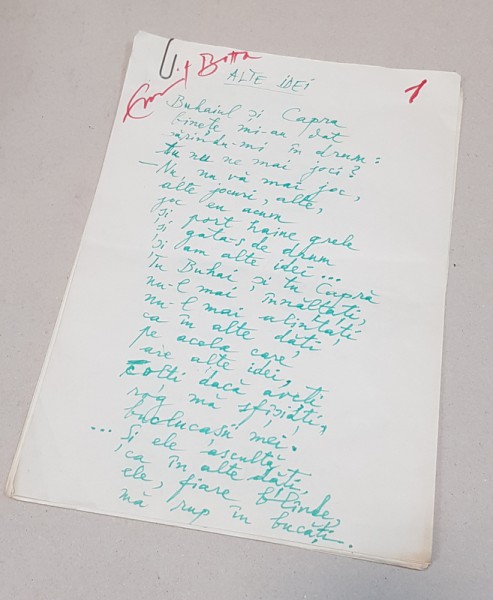 Emil Botta
1
ALTE IDEI
Buhaiul și Capra
binețe mi-au dat
sărindu-mi în drum:
tu nu ne mai joci?
– Nu, nu vă mai joc,
alte jocuri, alte,
joc eu acum
Și port haine grele
Și gata-s de drum
Și am alte idei...
Tu Buhai și tu Capră
nu-l mai înnălțați,
nu-l mai alintați
ca în alte dăți
pe acela care
are alte idei,
Colți dacă aveți
rog mă sfîșiați,
buclucașii mei.
... Și ele ascultă
ca în alte dăți,
ele, fiare blînde,
mă rup în bucăți.